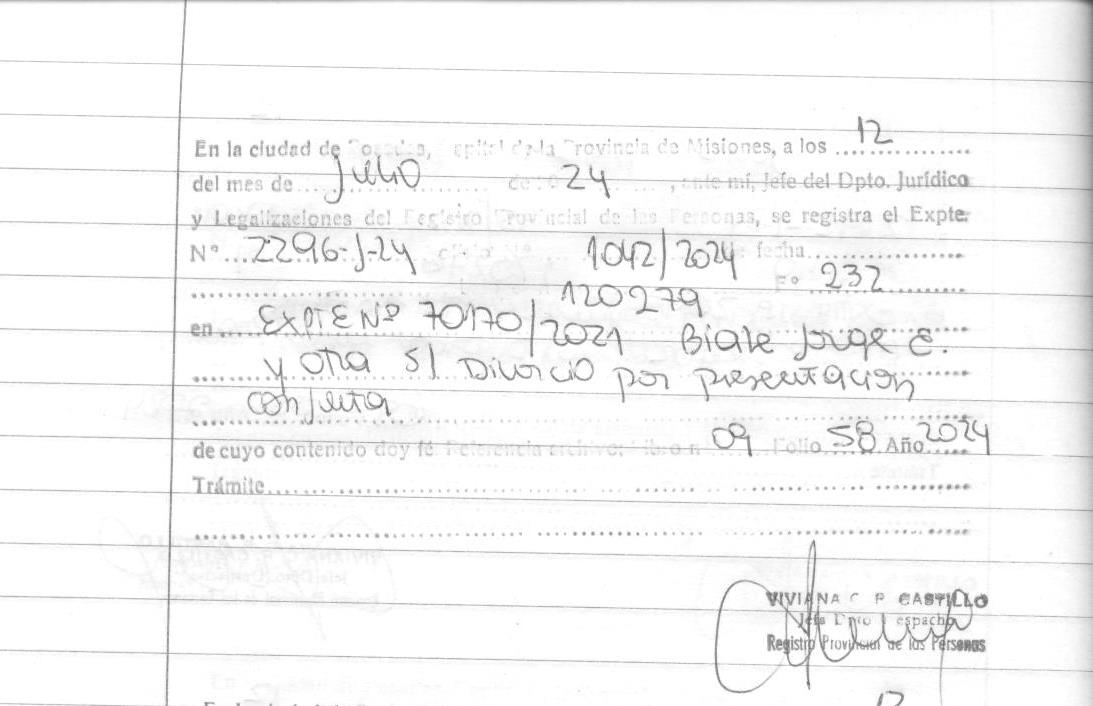 En la ciudad de Posadas, capital de la Provincia de Misiones, a los 12
del mes de Julio de 24, ante mi, Jefe del Dpto. Jurídico
y Legalizaciones del Registro Provincial de las Personas, se registra el Expte.
N° 2296-J-24 oficio N° 1042/2024 de fecha
120279 F° 232
en EXPTE Nº 70170/2021 Biale Jorge E.
y otra S/ Divorcio por presentacion
conjunta
de cuyo contenido doy fé Referencia archivo; libro n 09 Folio 58 Año 2024
Trámite
VIVIANA C. P. CASTILLO
Jefa Dpto Despacho
Registro Provincial de las Personas
12